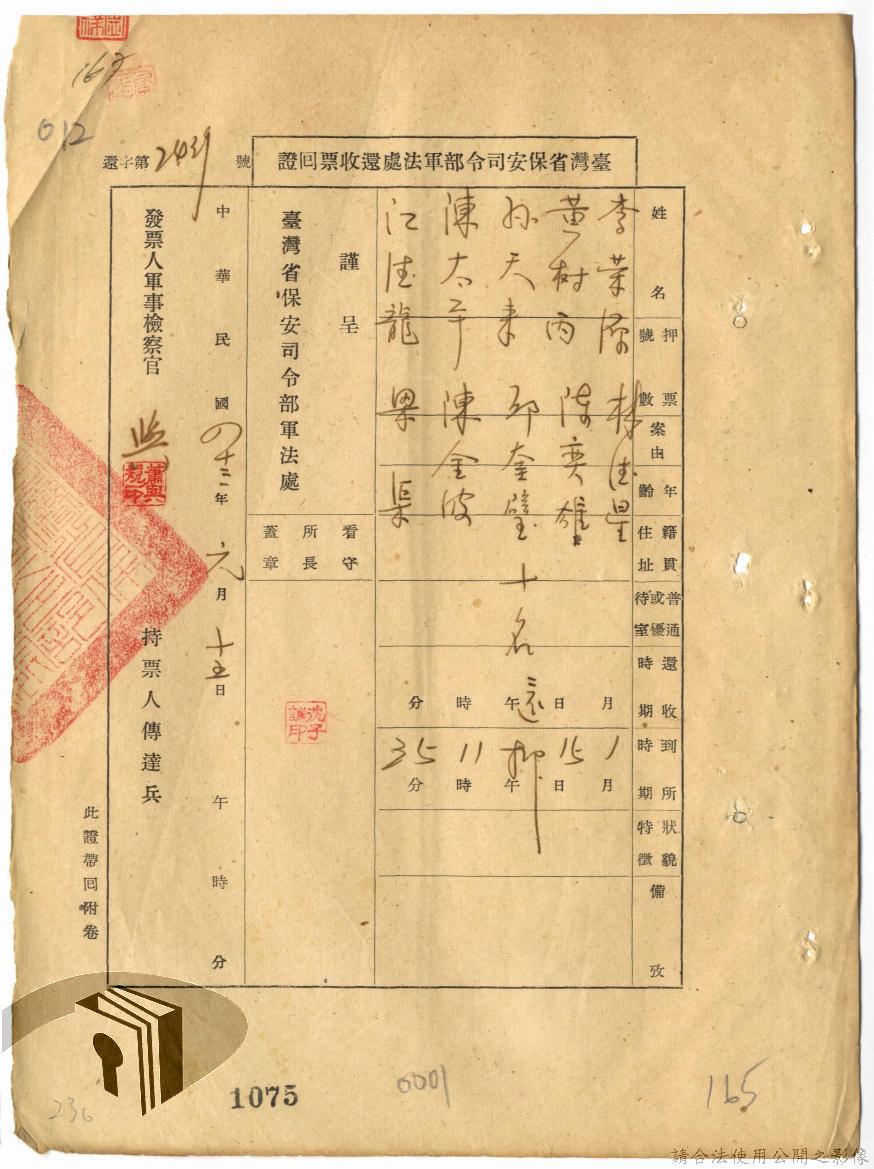 012
165
還字第2439號
臺灣省保安司令部軍法處還收票回證
姓名
押票號數
案由
年齡
籍貫住址
普通或優待室
還收時期
到所時期
狀貌特徵
備攷
李荣源 林德星
黃樹丙 陳奕雄
孫天來 邱奎璧 十名還押
陳太平 陳金波
江德龍 果渠
月日午時分
1月15日午11時35分
謹呈
臺灣省保安司令部軍法處
看守所長蓋章
沈子誠印
中華民國四十三年元月十五日午時分
發票人軍事檢察官
蕭與規印
持票人傳達兵
此證帶回附卷
236
1075
0001
165
請合法使用公開之影像